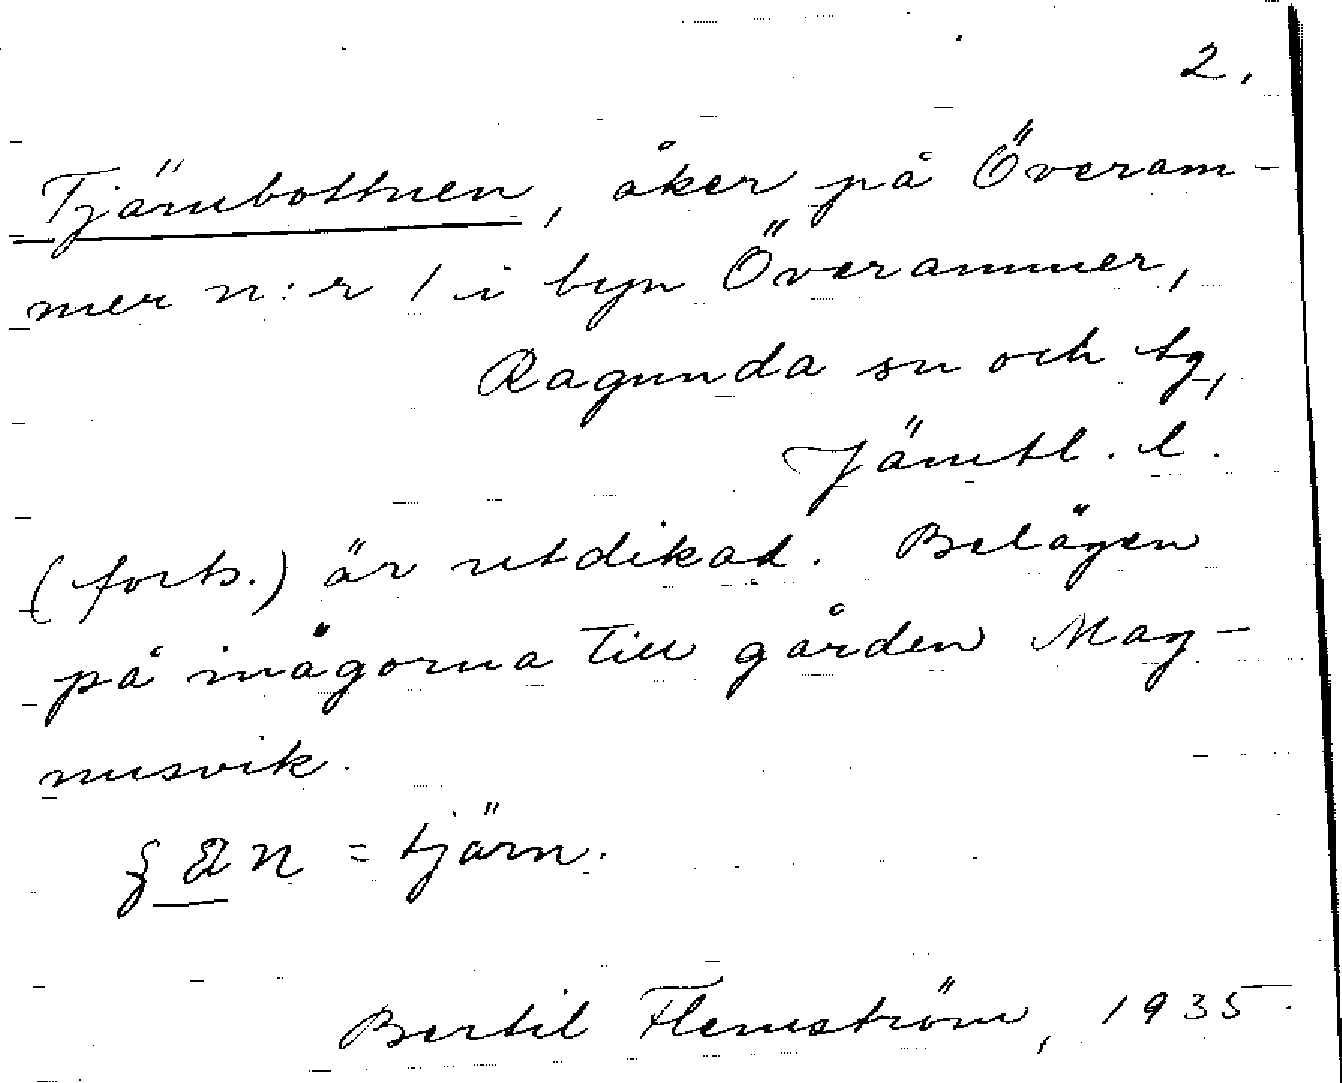 2.
Tjärnbottnen, åker på Överam-
mer n:r 1 i byn Överammer,
Ragunda sn och tg,
Jämtl. l.
(forts.) är utdikad. Belägen
på inägorna till gården Mag-
nusvik.
= tjärn.
Bertil Flemström, 1935.